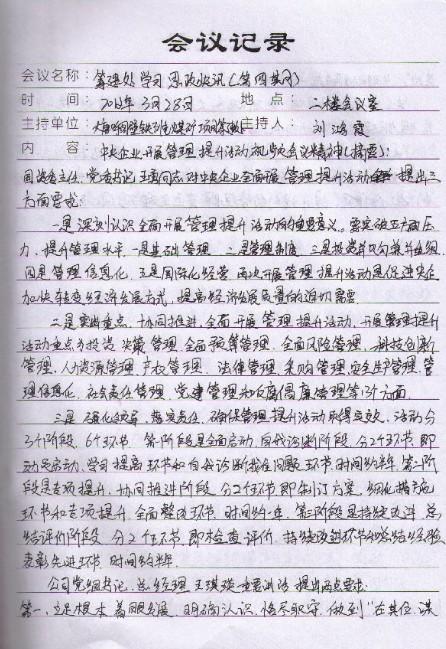 会议记录
会议名称: 筹建处学习思政快讯(第四期)
时 间: 2012年3月28日 地 点: 二楼会议室
主持单位: 煤矿项目筹 主持人: 刘鸿霞
内 容: 中央企业开展管理提升活动视频会议精神(摘要):
国资委主任、党委书记王勇同志对中央企业全面开展管理提升活动提出三
方面要求:
一是深刻认识全面开展管理提升活动的重要意义。 压
力,提升管理水平,一是基础管理 二是管理制度 三是投资并购
四是管理信息化 五是国际化经营 开展管理提升活动是促进央企
加快转变经济发展方式,提高经济发展质量的迫切需要
二是突出重点,协同推进,全面开展管理提升活动,开展管理提升
活动重点为投资决策管理 全面预算管理 全面风险管理 科技创新
管理、人力资源管理 产权管理、法律管理 采购管理 安全生产管理 管
理信息化、社会责任管理、党建管理和反腐倡廉管理等13个方面。
三是强化领导,落实责任,确保管理提升活动取得实效,活动分
3个阶段、6个环节 第一阶段是全面启动、自我诊断阶段,分2个环节 即
动员启动、学习提高环节和自我诊断找准问题环节 时间约半年 第二阶
段是专项提升、协同推进阶段 分2个环节 即制订方案、细化措施
环节和专项提升、全面整改环节 时间约一年 第三阶段是持续改进、总
结评价阶段 分2个环节 即检查评价、持续改进环节和总结经验
表彰先进环节 时间约半年.
公司党组书记、总经理王琪 重要讲话 提出两点要求:
第一、立足根本 着眼发展 明确认识 恪尽职守 做到“在其位、谋